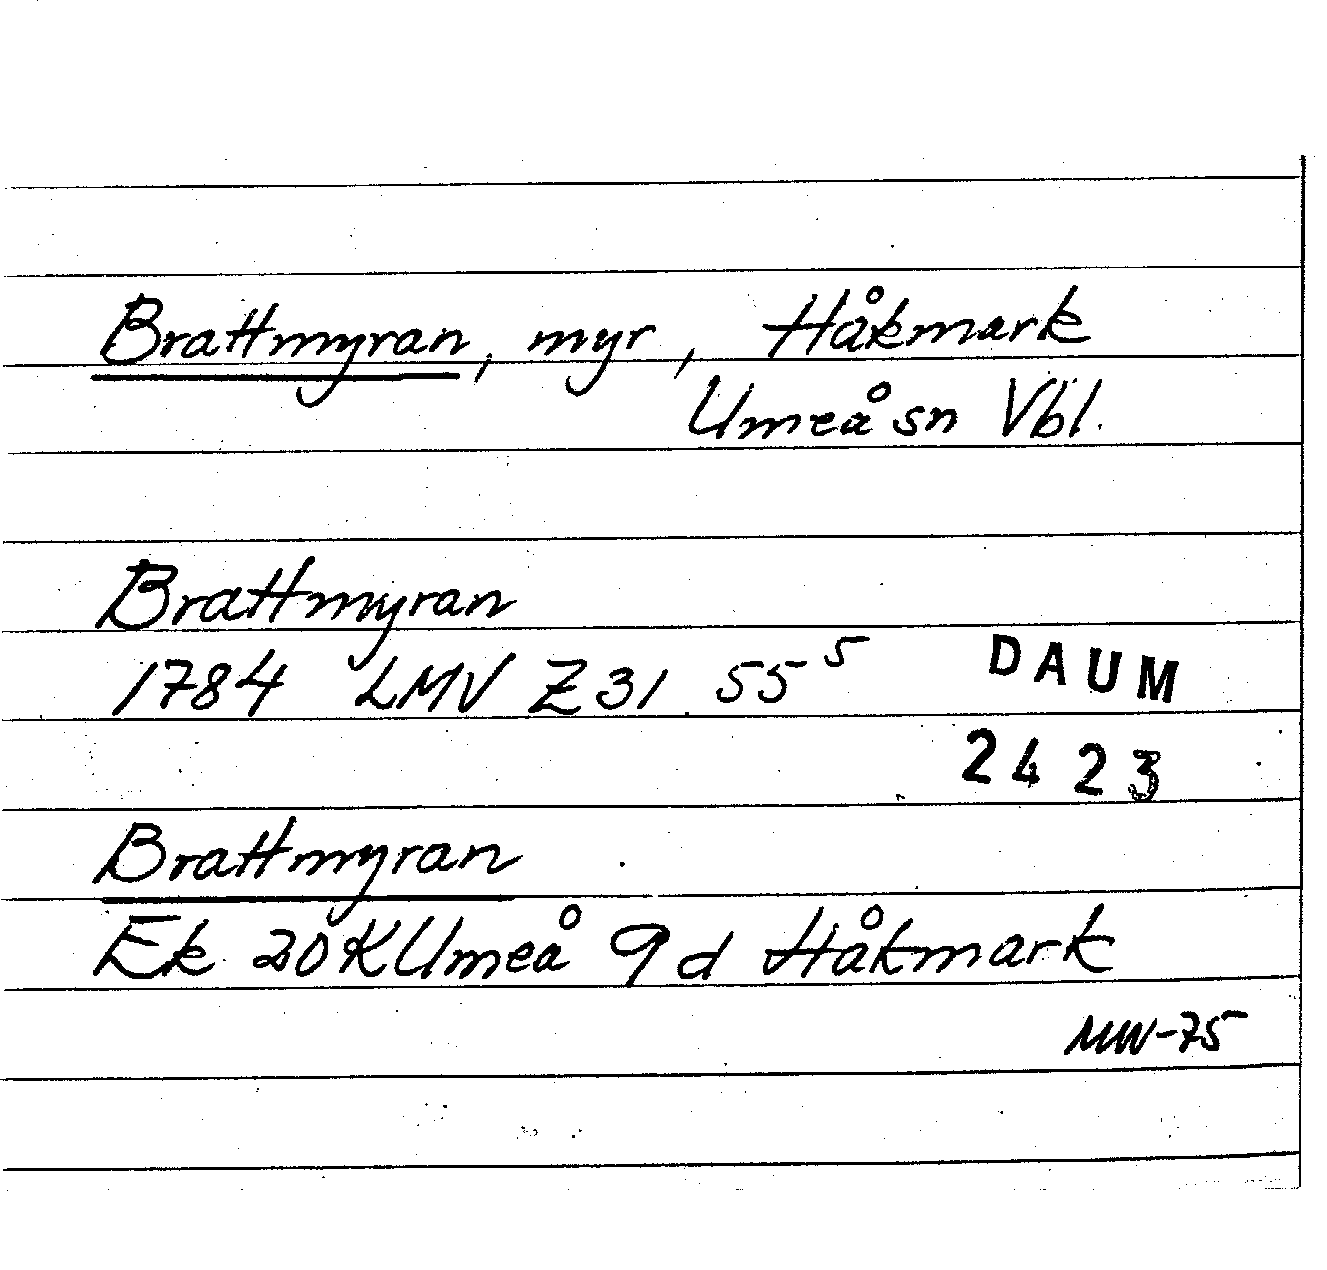 Brattmyran, myr, Håkmark
Umeå sn Vbl.
Brattmyran
1784 LMV Z31 55⁵
DAUM
2423
Brattmyran
Ek 20K Umeå 9d Håkmark
MW-75